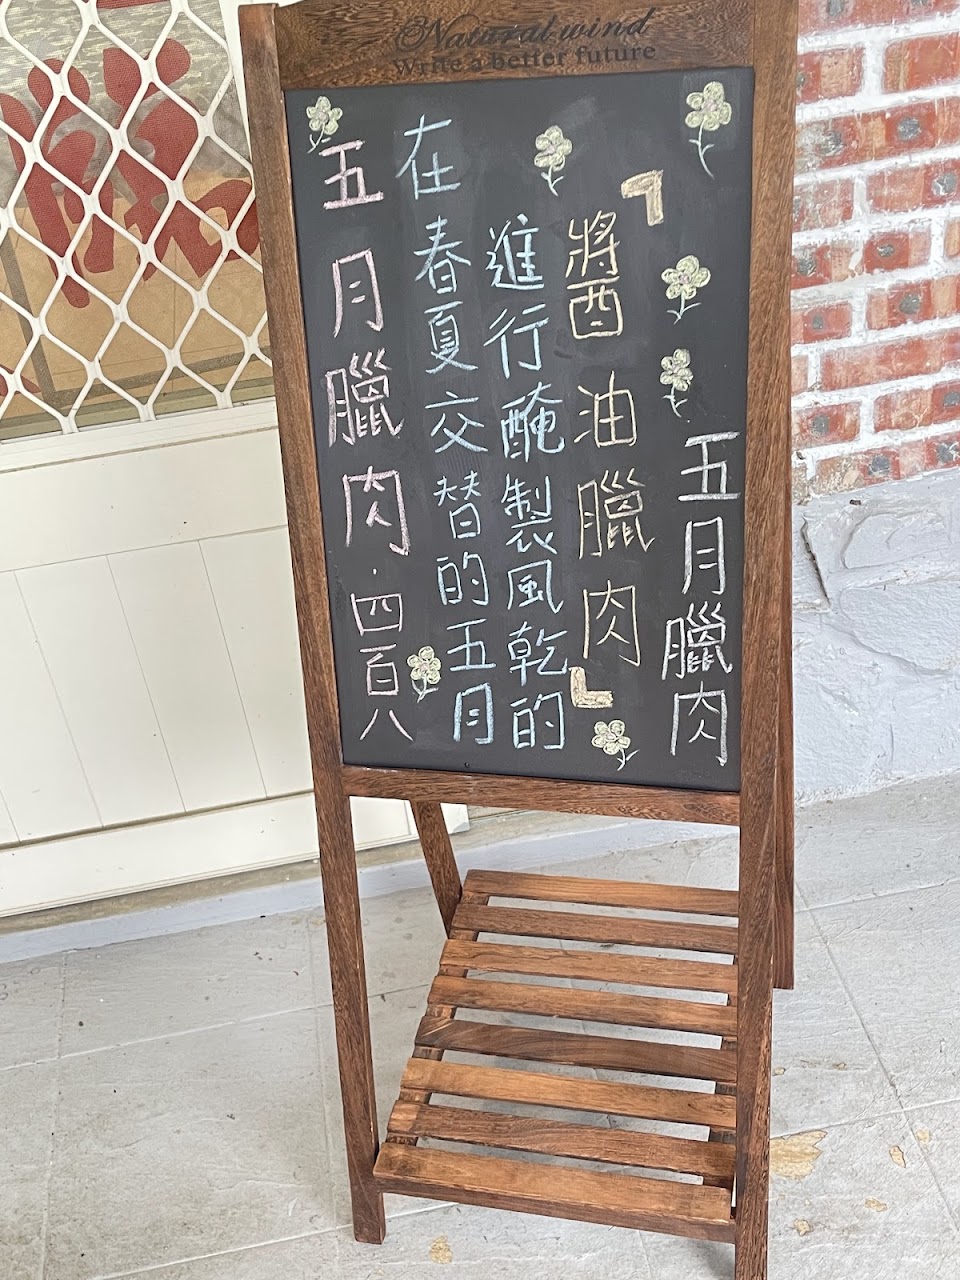 Natural wind
Write a better future
五月臘肉．四百八
在春夏交替的五月
進行醃製風乾的
「醬油臘肉」
五月臘肉